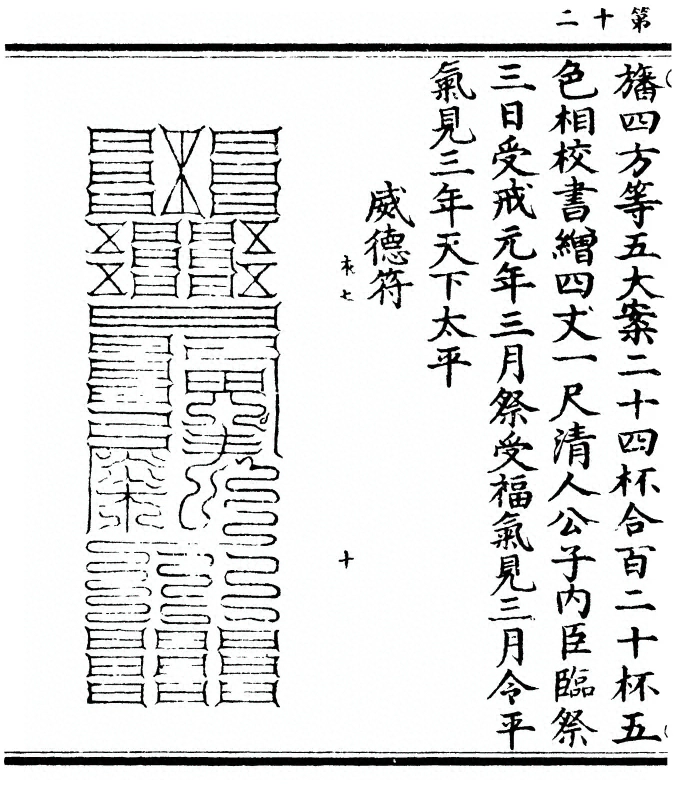 第十二
旛四方等五大案二十四杯合百二十杯五
色相校書繒四丈一尺清人公子內臣臨祭
三日受戒元年三月祭受福氣見三月令平
氣見三年天下太平
威德符
衣七
十